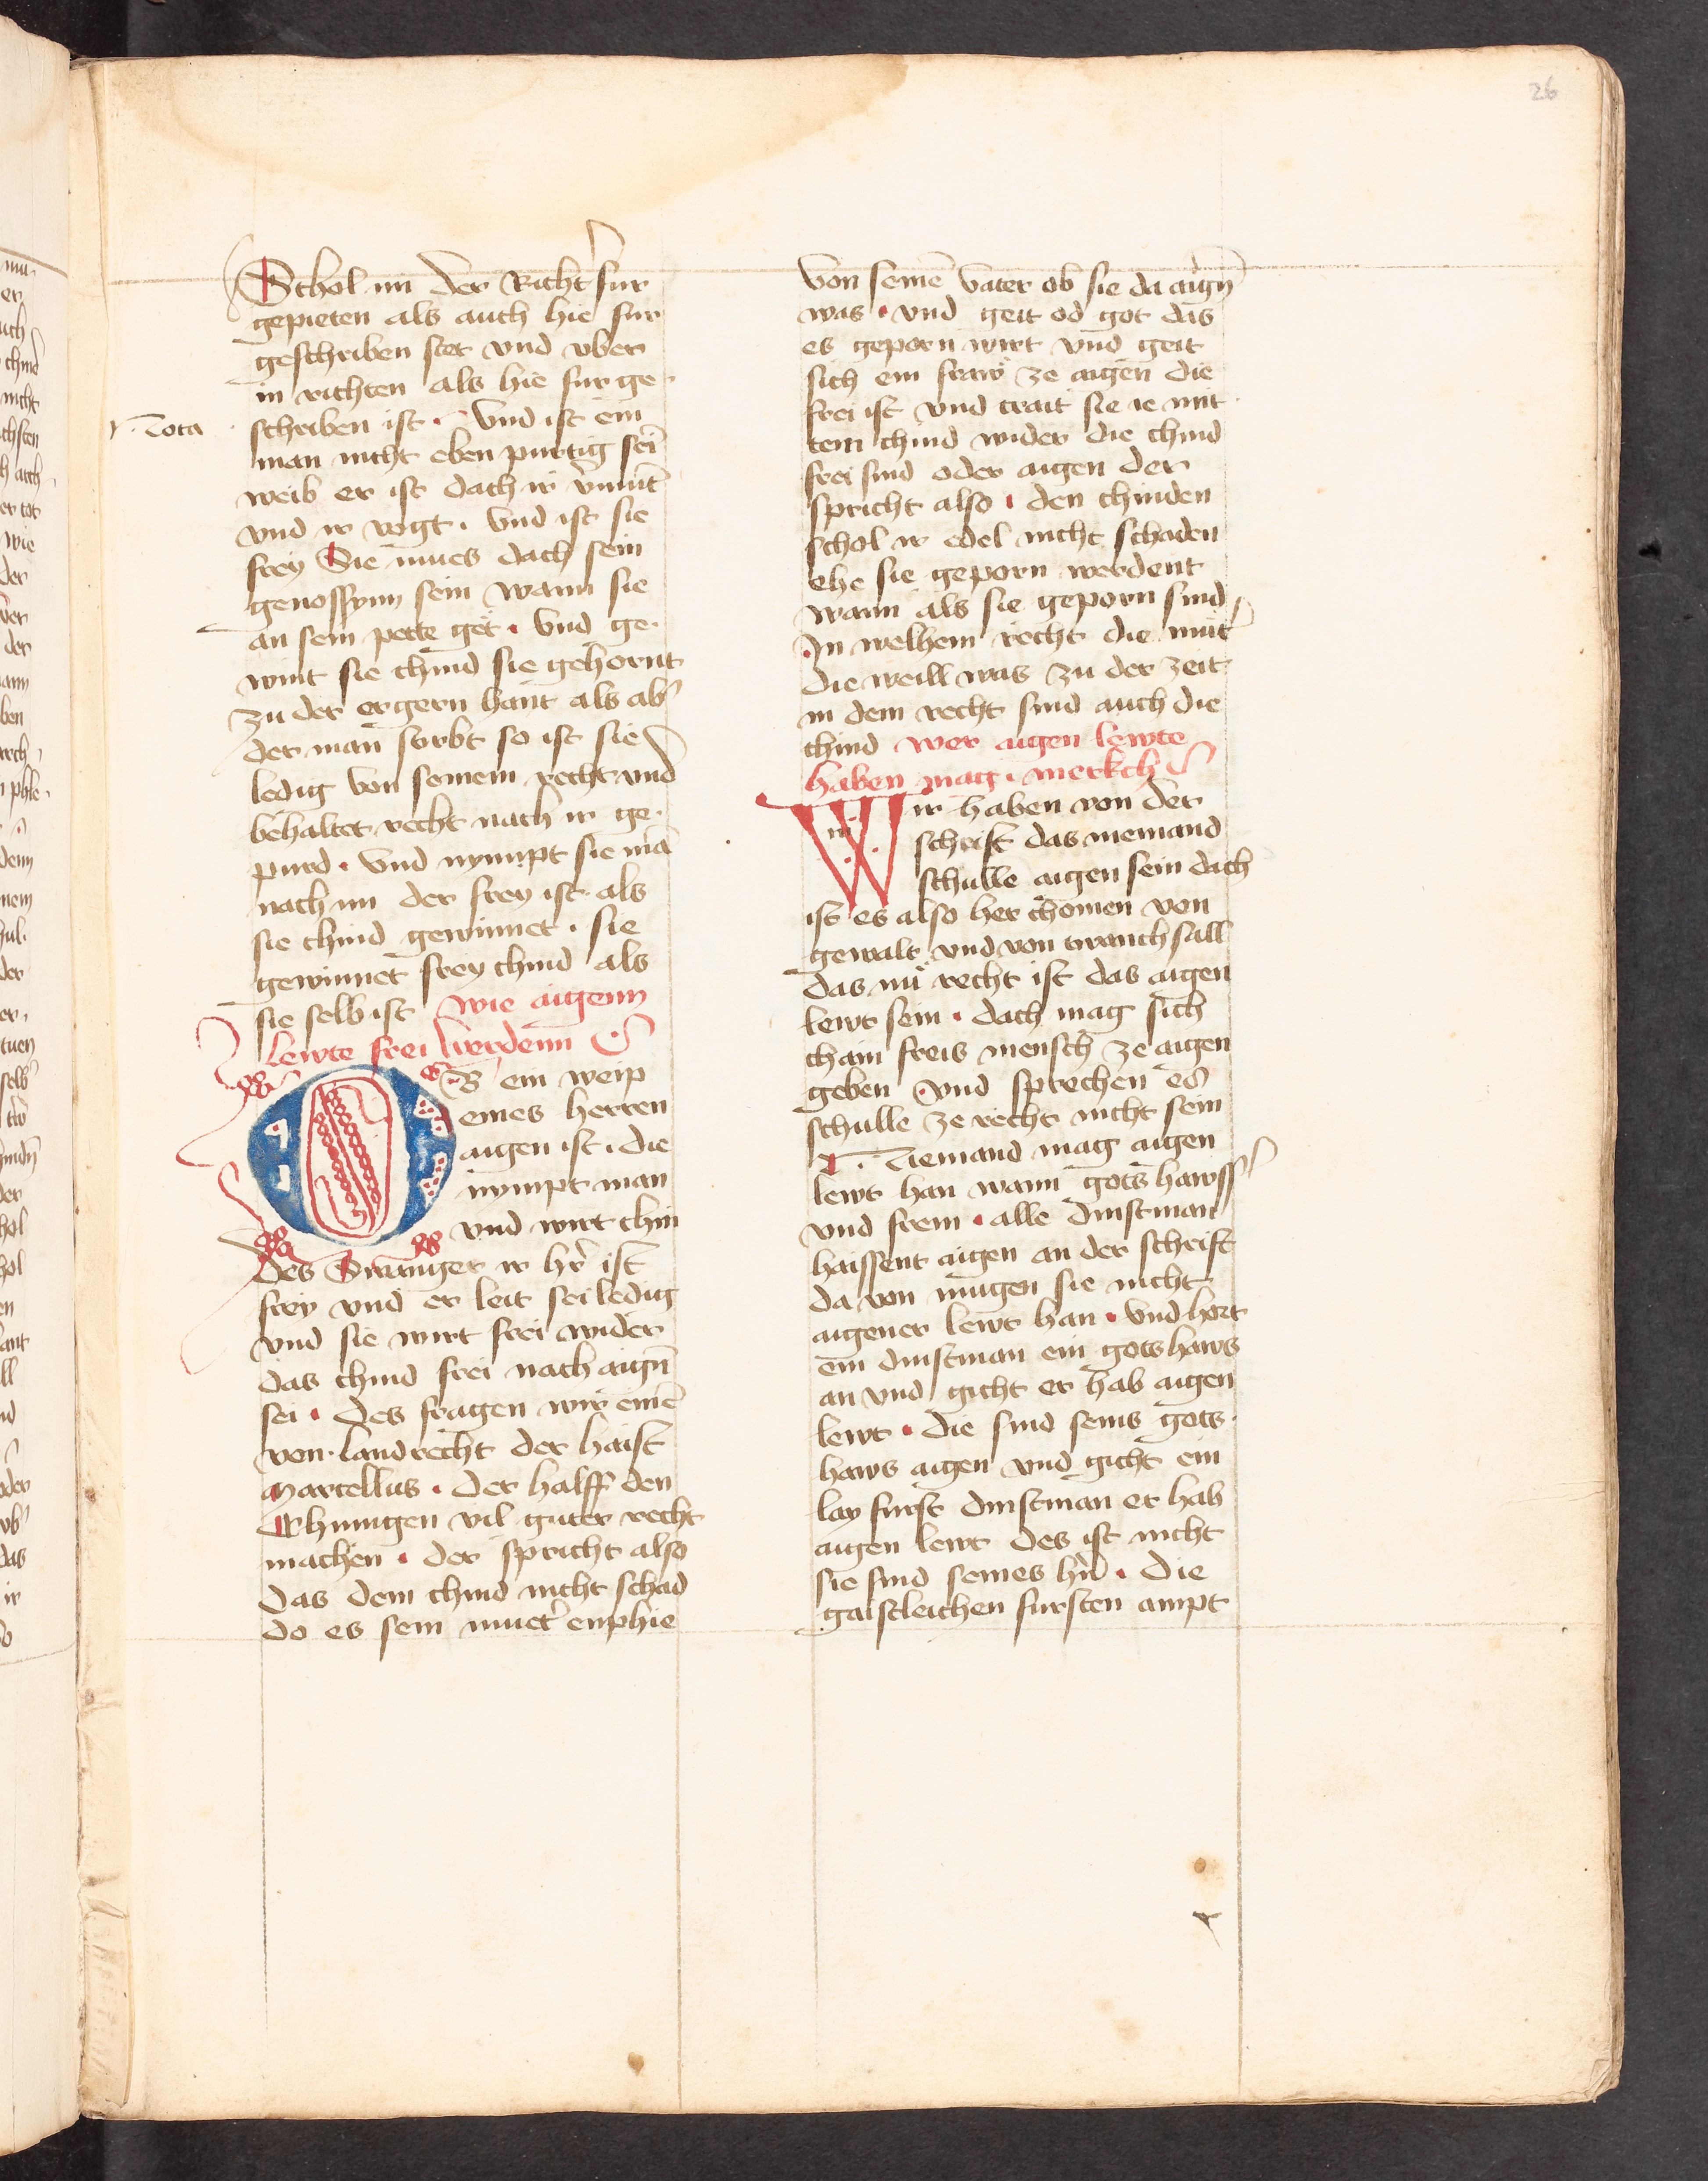 26
Schol im der Richt̄ fur
gepieten als auch hie fur
geschriben stet vnd vber
in richten als hie fur ge
Nota
schriben ist · Vnd ist ein
man nicht eben purtig sei
weib er ist dach ir v̄mūt
vnd ir vogt · Vnd ist sie
frey Sie mues dach sein
genossynn sein wann sie
an sein pette get · Vnd ge
wint sie chind sie gehornt
zu der ergern hant als ab̄
der man stirbt so ist sie
ledig von seinem recht vnd
behaltet recht nach ir ge
purd · Vnd nympt sie mā
nach im der frey ist als
sie chind gewinnet · sie
gewinnet frey chind als
sie selb ist wie aigenn
lewte frei werdenn
OB ein weip
eines herren
aigen ist · die
nympt man
vnd wirt chin
des Swanger ir hr̄ ist
frey vnd er leit sei ledig
vnd sie wirt frei wider
das chind frei nach aign̄
sei · des fragen wir einē
von landrecht der haist
Marcellus · der halff den
Chunigen vil guter recht
machen · der spricht also
das dem chind nicht schad
do es sein muet̄ emphie
von seinē vater ob sie da aign̄
was · vnd geit od got das
es geporn wirt vnd geit
sich ein fraw ze aigen die
frei ist vnd trait sie ie mit
tem chind wider die chind
frei sind oder aigen der
spricht also · den chinden
schol ir edel nicht schaden
ehe sie geporn werdent
wann als sie geporn sind
In welhem recht die mūt̄
die weill was zu der zeit
in dem recht sind auch die
chind wer aigen lewte
haben mag · merkch
Wir haben von der
schrift das niemand
schulle aigen sein dach
ist es also her chomen von
gewalt vnd von twanchsall
das nu recht ist das aigen
lewt sein · dach mag sich
chain freis mensch ze aigen
geben · vnd sprechen es
schulle ze recht nicht sein
Niemand mag aigen
lewt han wann gots hawss
vnd frein · alle dinstman
haissent aigen an der schrift
da von mugen sie nicht
aigener lewt han · Vnd hort
ein dinstman ein gotshaws
an vnd gicht er hab aigen
lewt · die sind seins gots
haws aigen vnd gicht ein
lay furst dinstman er hab
aigen lewt des ist nicht
sie sind seines hr̄n · Die
gaistleichen fursten ampt